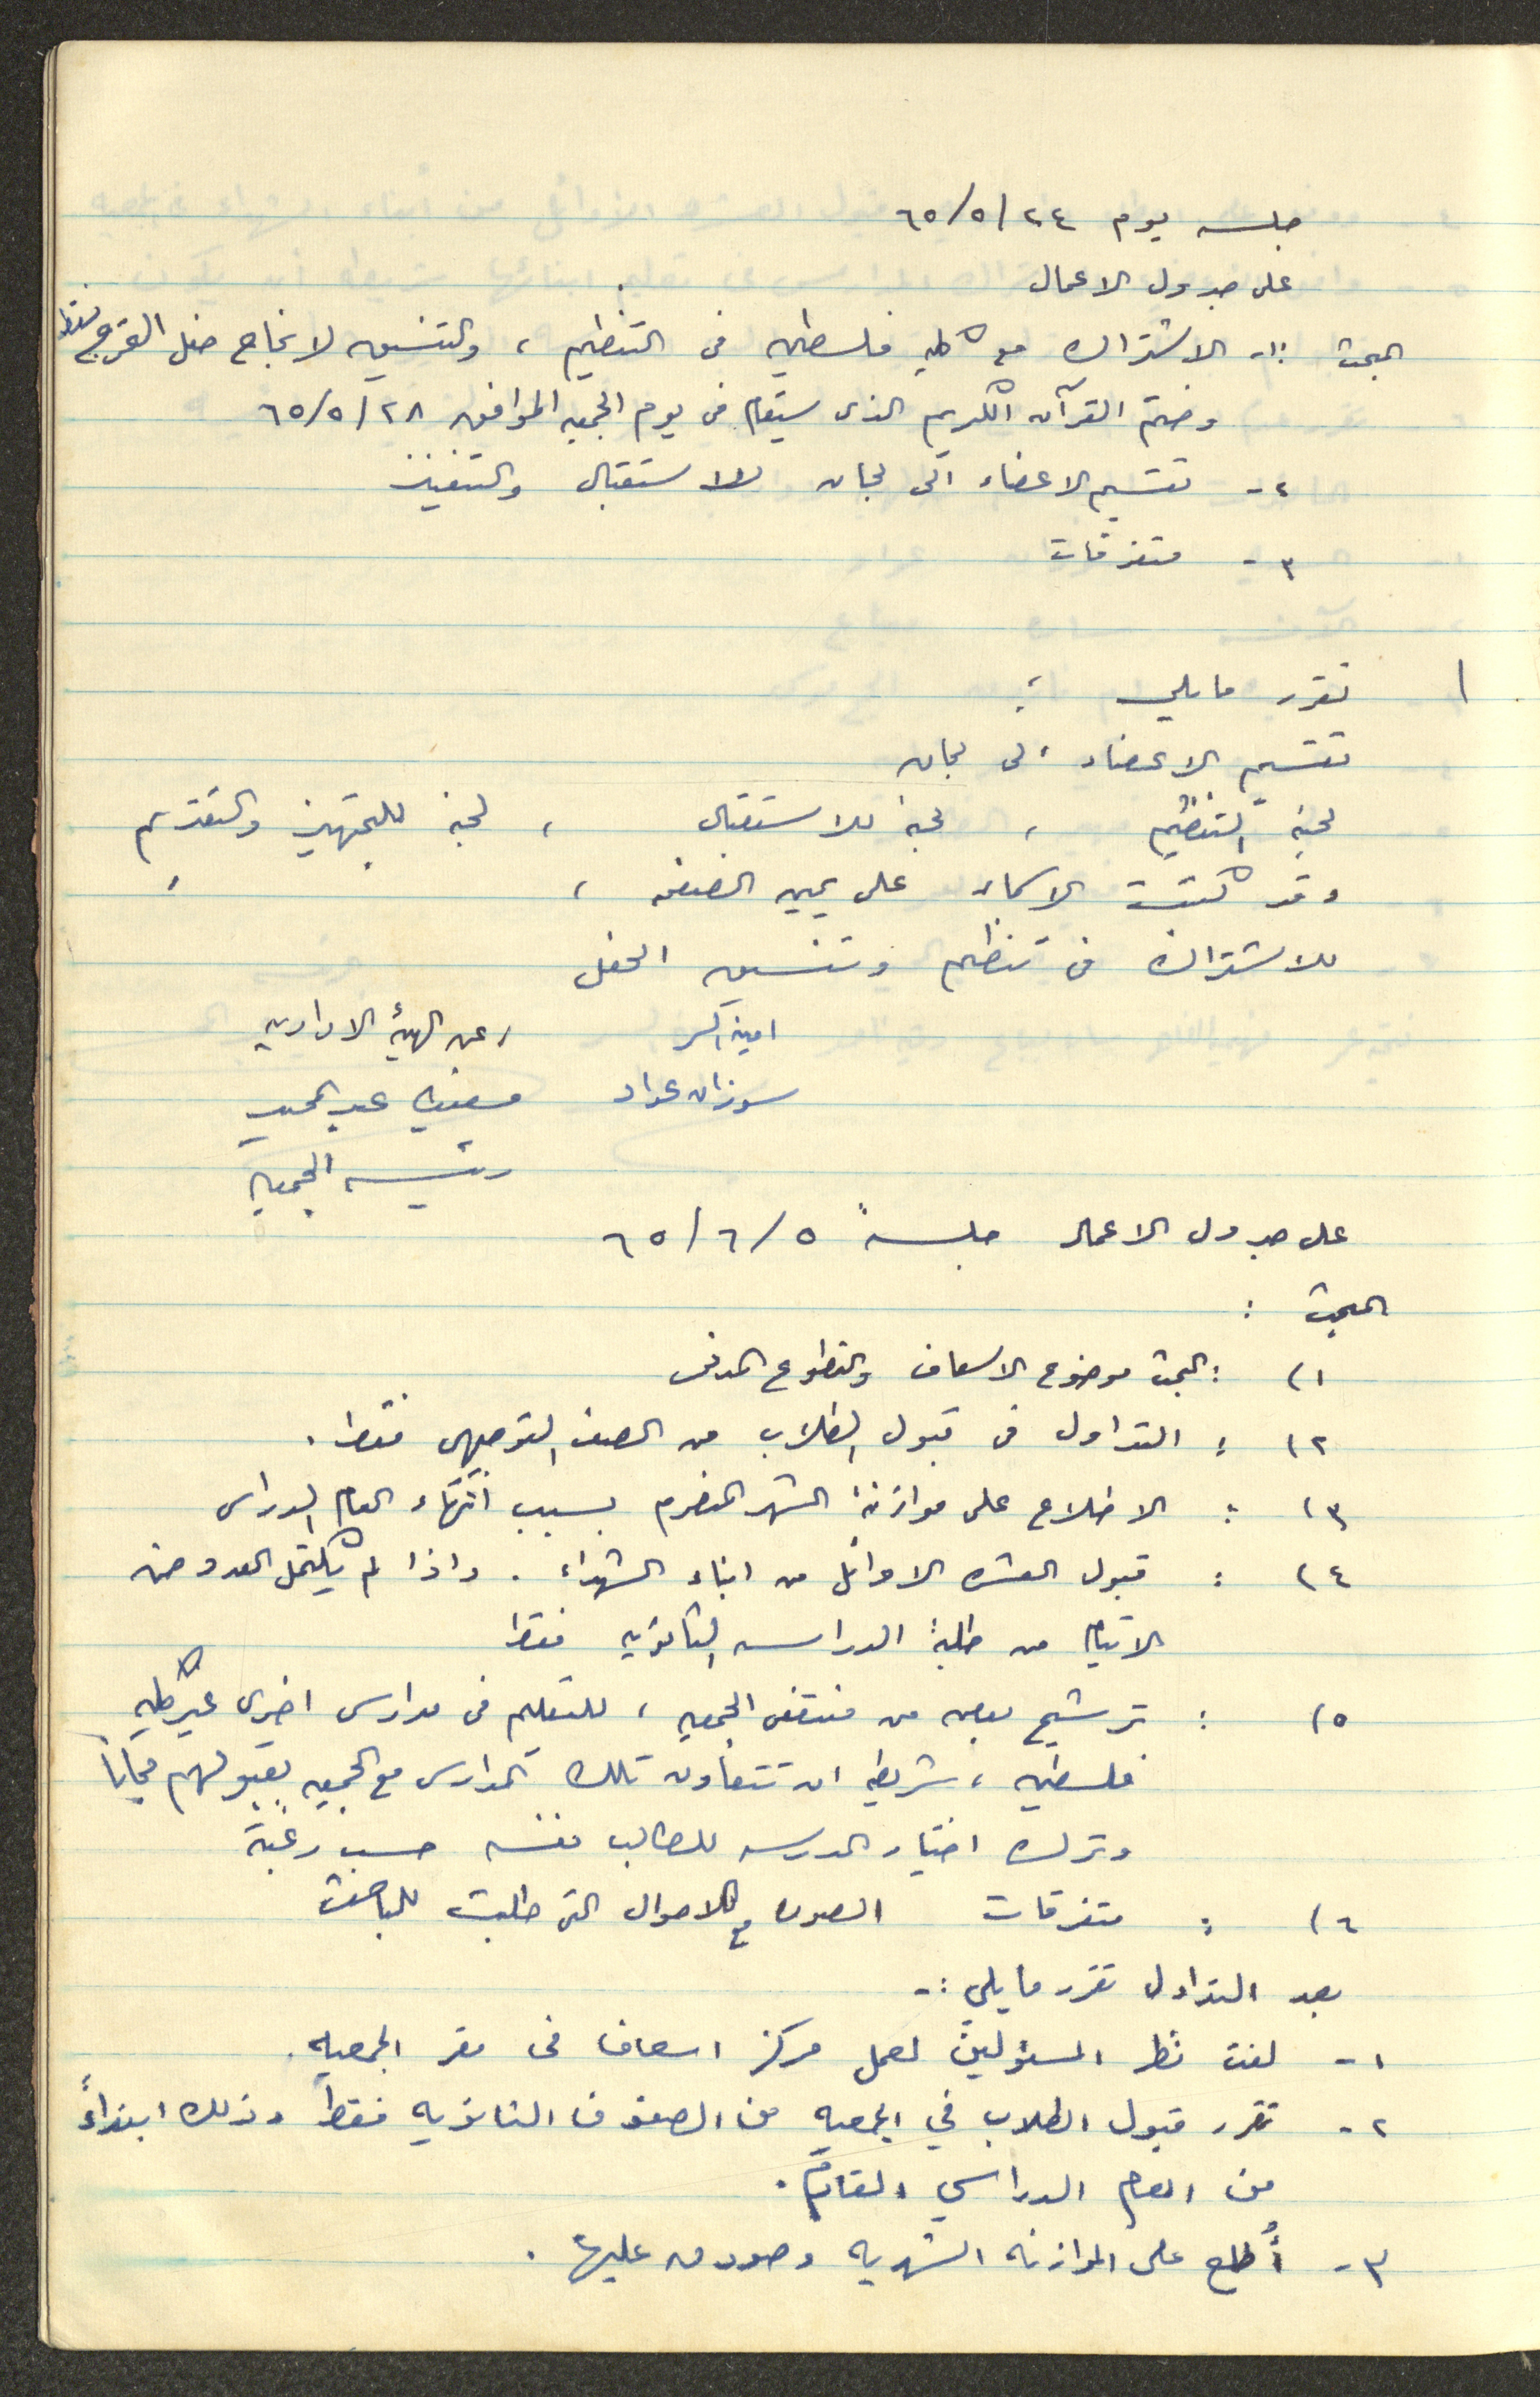 جلسه يوم ٢٤/٥/٦٥
على جدول الاعمال
البحث :١- الاشتراك مع كلية فلسطين في التنظيم ، والتنسيق لانجاح حفل التخرج فقط
وختم القرآن الكريم الذى سيقام في يوم الجمعه الموافق ٢٨/٥/٦٥
٢- تقسيم الاعضاء الى لجان للاستقبال والتنفيذ
٣- متفرقات
تقرر ما يلي :
تقسيم الاعضاء الى لجان
لجنة التنظيم ، لجنة للاستقبال ، لجنة للتجهيز والتقديم ،
وقد كتبت الاسماء على يمين الصفحه ،
للاشتراك في تنظيم وتنسيق الحفل
امينة السر /عن الهيئة الادارية
سوزان عواد عبد الحميد
رئيسة الجمعية
على جدول الاعمال جلسة ٥/٦/٦٥
البحث :
١) : البحث موضوع الاسعاف والتطوع المدني
٢) : التداول في قبول الطلاب من الصف التوجيهي فقط .
٣) : الاطلاع على موازنة الشهر المنصرم بسبب انتهاء العام الدراسى
٤) : قبول العشره الاوائل من ابناء الشهداء . واذا لم يكتمل العدد فمن
الايتام من طلبة الدراسه الثانويه فقط
٥) : ترشيح بعض من منتفعي الجمعيه ، للتعليم في مدارس اخرى غير كلية
فلسطين ، شريطة ان تتعاون تلك المدارس مع الجمعيه بقبولهم مجاناً
وترك اختيار المدرسه للطالب نفسه حسب رغبته
٦) : متفرقات الصور مع الاحوال التي طلبت للباحثة
بعد التداول تقرر ما يلي :-
١- لفت نظر المسؤولين لعمل مركز اسعاف في مقر الجمعيه .
٢- تقرر قبول الطلاب في الجمعيه من الصفوف الثانويه فقط وذلك ابتداءً
من العام الدراسي القادم .
٣- أُطلع على الموازنه الشهريه وصودق عليها .